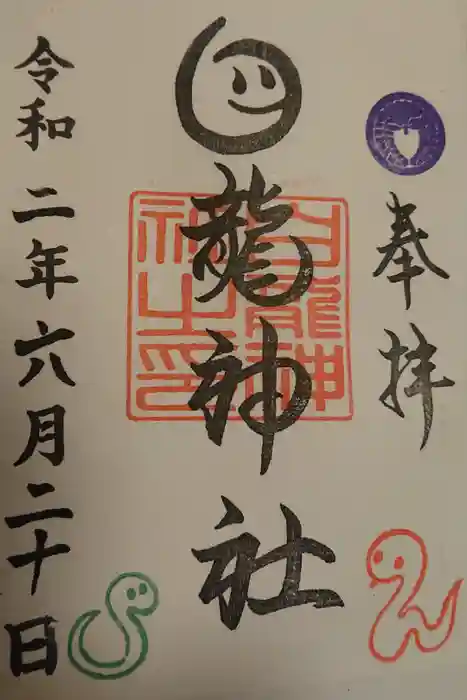 奉拝
龍神社
白龍神社之印
令和二年六月二十日